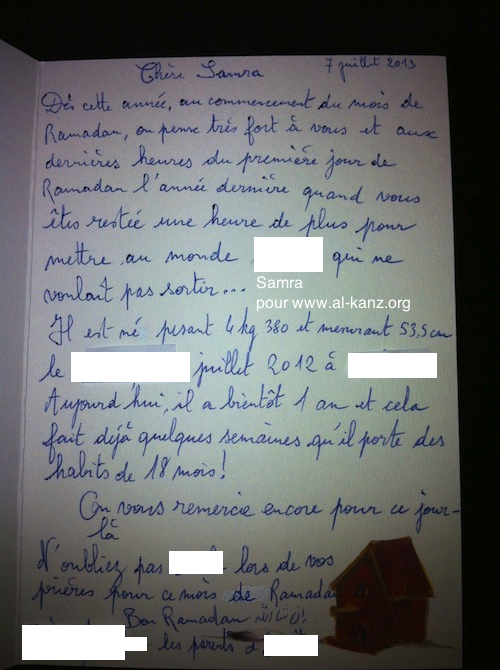 Chère Samra
7 juillet 2013
Dès cette année, au commencement du mois de
Ramadan, on pense très fort à vous et aux
dernières heures du première jour de
Ramadan l'année dernière quand vous
êtes restée une heure de plus pour
mettre au monde qui ne
voulait pas sortir...
Samra
pour www.al-kanz.org
Il est né pesant 4kg 380 et mesurant 53,5 cm
le juillet 2012 à
Aujourd'hui, il a bientôt 1 an et cela
fait déjà quelques semaines qu'il porte des
habits de 18 mois!
On vous remercie encore pour ce jour-
là
N'oubliez pas lors de vos
prières pour ce mois de Ramadan
Bon Ramadan إن شاء الله
les parents d